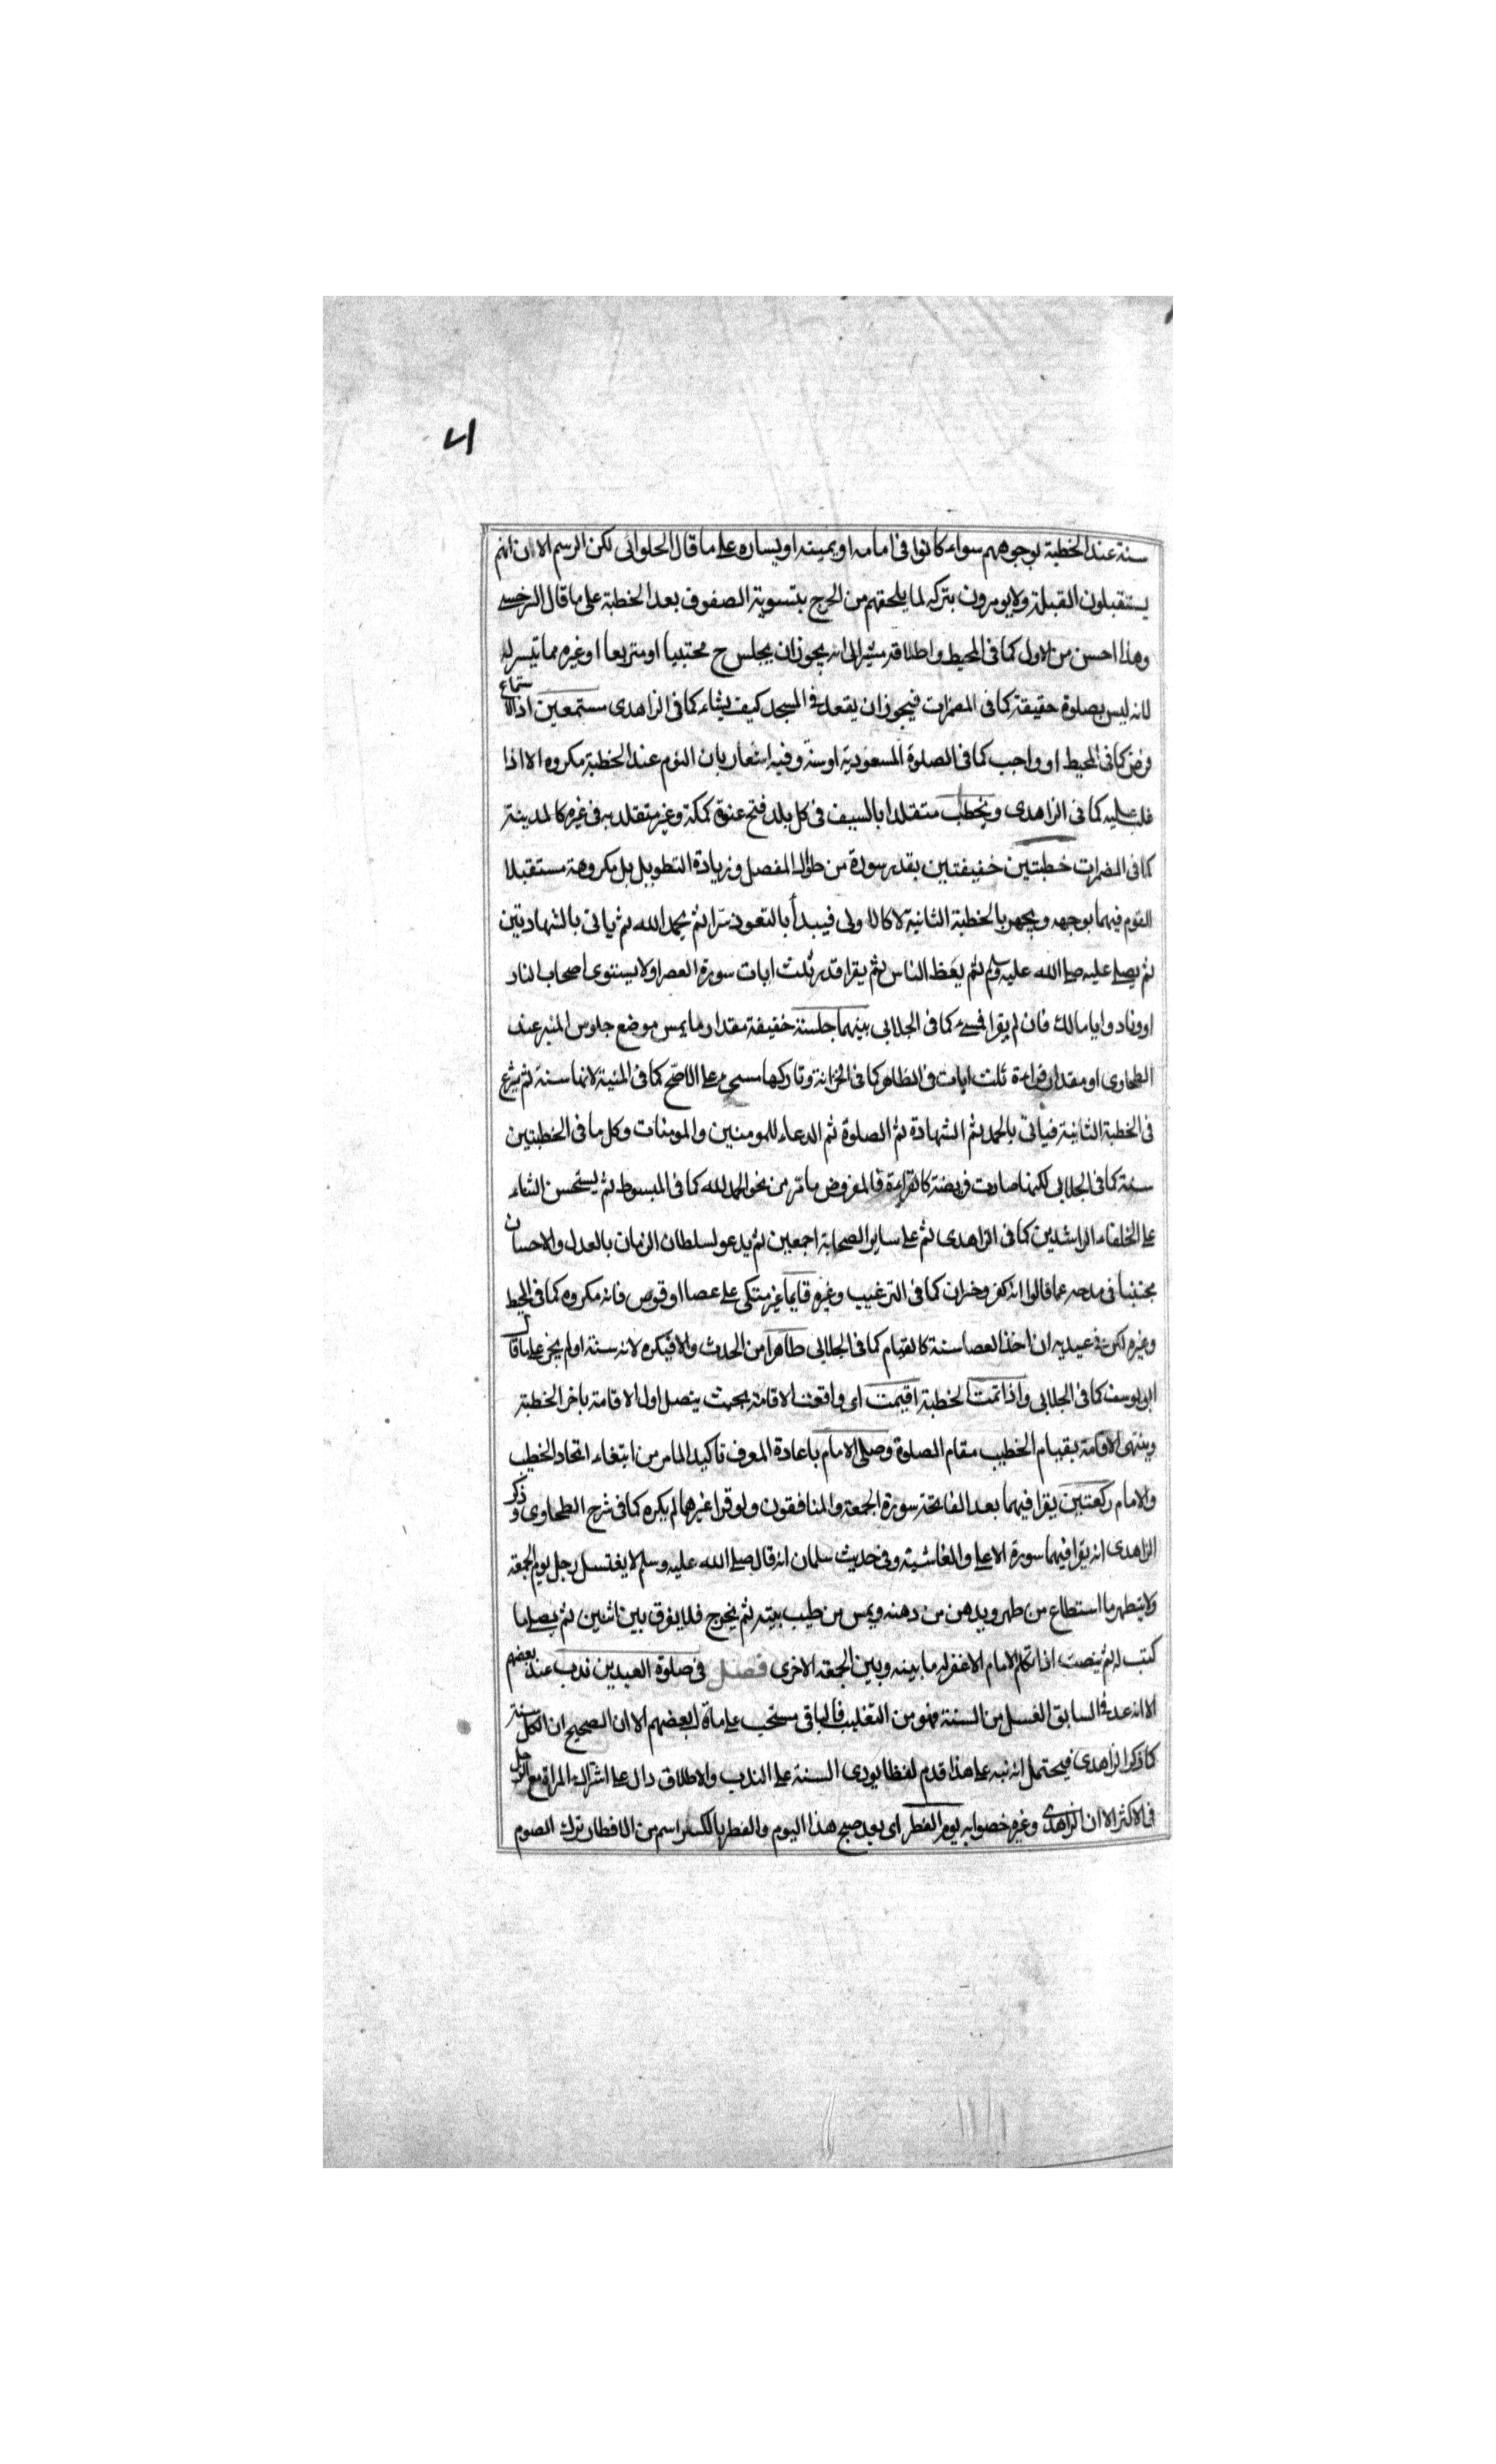 ٧١
سنة عند الخطبة بوجوههم سواء كانوا فى امامه او يمينه او يساره على ما قال الحلوانى لكن الرسم الان انهم
يستقبلون القبلة ولا يومرون بتركه لما يلحقهم من الحرج بتسوية الصفوف بعد الخطبة على ما قال السرخسى
وهذا احسن من الاول كما فى المحيط واطلاقه مشير الى انه يجوز ان يجلس ح محتبيا او متربعا او غيره مما تيسر له
لانه ليس بصلوة حقيقة كما فى المضمرات فيجوز ان يقعد فى المسجد كيف يشاء كما فى الزاهدى مستمعين اذ الاستماع
فرض كما فى المحيط او واجب كما فى الصلوة المسعودية او سنة وفيه اشعار بان النوم عند الخطبة مكروه الا اذا
غلب عليه كما فى الزاهدى ويخطب متقلدا بالسيف فى كل بلد فتح عنوة كمكة وغير متقلد به فى غيره كالمدينة
كما فى المضمرات خطبتين خفيفتين بقدر سورة من طوال المفصل وزيادة التطويل بل مكروهة مستقبلا
القوم فيهما بوجهه ويجهر بالخطبة الثانية لا كالاولى فيبدأ بالتعوذ سرا ثم يحمد الله ثم ياتى بالشهادتين
ثم يصلى عليه صلى الله عليه وسلم ثم يعظ الناس ثم يقرا قدر ثلث ايات سورة العصر او لا يستوى اصحاب النار
او ونادوا يا مالك فان لم يقرا فسىء كما فى الجلابى بينهما جلسة خفيفة مقدار ما يمس موضع جلوس المنبر عند
الطحاوى او مقدار قراءة ثلث ايات فى الظاهر كما فى الخزانة وتاركها مسىء على الاصح كما فى المنية لانها سنة ثم يشرع
فى الخطبة الثانية فياتى بالحمد ثم الشهادة ثم الصلوة ثم الدعاء للمومنين والمومنات وكل ما فى الخطبتين
سنة كما فى الجلابى لكنها صارت فريضة كالقراءة فالمفروض ما مر من نحو الحمد لله كما فى المبسوط ثم يستحسن الثناء
على الخلفاء الراشدين كما فى الزاهدى ثم على ساير الصحابة اجمعين ثم يدعو لسلطان الزمان بالعدل والاحسان
مجتنبا فى مدحه عما قالوا انه كفر وخسران كما فى الترغيب وغيره قايما غير متكى على عصا او قوس فانه مكروه كما فى المحيط
وغيره لكن فى عيديه ان اخذ العصا سنة كالقيام كما فى الجلابى طاهرا من الحدث والا فيكره لانه سنة او لم يجز على ما قال
ابو يوسف كما فى الجلابى واذا تمت الخطبة اقيمت اى واقعت الاقامة بحيث يتصل اول الاقامة باخر الخطبة
وينتهى الاقامة بقيام الخطيب مقام الصلوة وصلى الامام باعادة المعرف تاكيد لما مر من ابتغاء اتحاد الخطيب
والامام ركعتين يقرا فيهما بعد الفاتحة سورة الجمعة والمنافقون ولو قرا غيرهما لم يكره كما فى شرح الطحاوى وذكر
الزاهدى انه يقرا فيهما سورة الاعلى والغاشية وفى حديث سلمان انه قال صلى الله عليه وسلم لا يغتسل رجل يوم الجمعة
ولا يتطهر ما استطاع من طهر ويدهن من دهنه ويمس من طيب بيته ثم يخرج فلا يفرق بين اثنين ثم يصلى ما
كتب له ثم ينصت اذا تكلم الامام الا غفر له ما بينه وبين الجمعة الاخرى فصل فى صلوة العيدين ندب عند بعضهم
الا انه عد فى السابق الغسل من السنة فهو من التغليب فالباقى مستحب على ما قال بعضهم الا ان الصحيح ان الكل سنة
كما ذكر الزاهدى فيحتمل انه نبه على هذا قدم لفظا يودى السنة على الندب والاطلاق دال على اشتراك المراة مع الرجل
فى الاكثر الا ان الزاهدى وغيره خصوا به يوم الفطر اى بعد صبح هذا اليوم والفطر بالكسر اسم من الافطار ترك الصوم